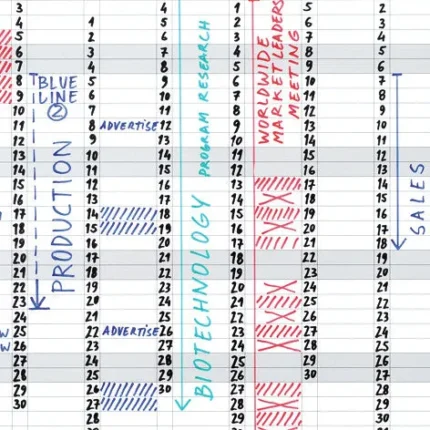 3
4
5
6
7
8
9
10
11
12
13
14
15
16
17
18
19
20
21
22
23
24
25
26
27
28
29
30
BLUE
LINE
②
PRODUCTION
1
2
3
4
5
6
7
8
9
10
11
12
13
14
15
16
17
18
19
20
21
22
23
24
25
26
27
28
ADVERTISE
ADVERTISE
4
5
6
7
8
9
10
11
12
13
14
15
16
17
18
19
20
21
22
23
24
25
26
27
28
29
30
BIOTECHNOLOGY PROGRAM RESEARCH
1
2
3
4
5
6
7
8
9
10
11
12
13
14
15
16
17
18
19
20
21
22
23
24
25
26
27
28
29
WORLDWIDE
MARKET LEADERS
MEETING
5
6
7
8
9
10
11
12
13
14
15
16
17
18
19
20
21
22
23
24
25
26
27
28
29
30
2
3
4
5
6
7
8
9
10
11
12
13
14
15
16
17
18
19
20
21
22
23
24
25
26
27
28
29
30
SALES